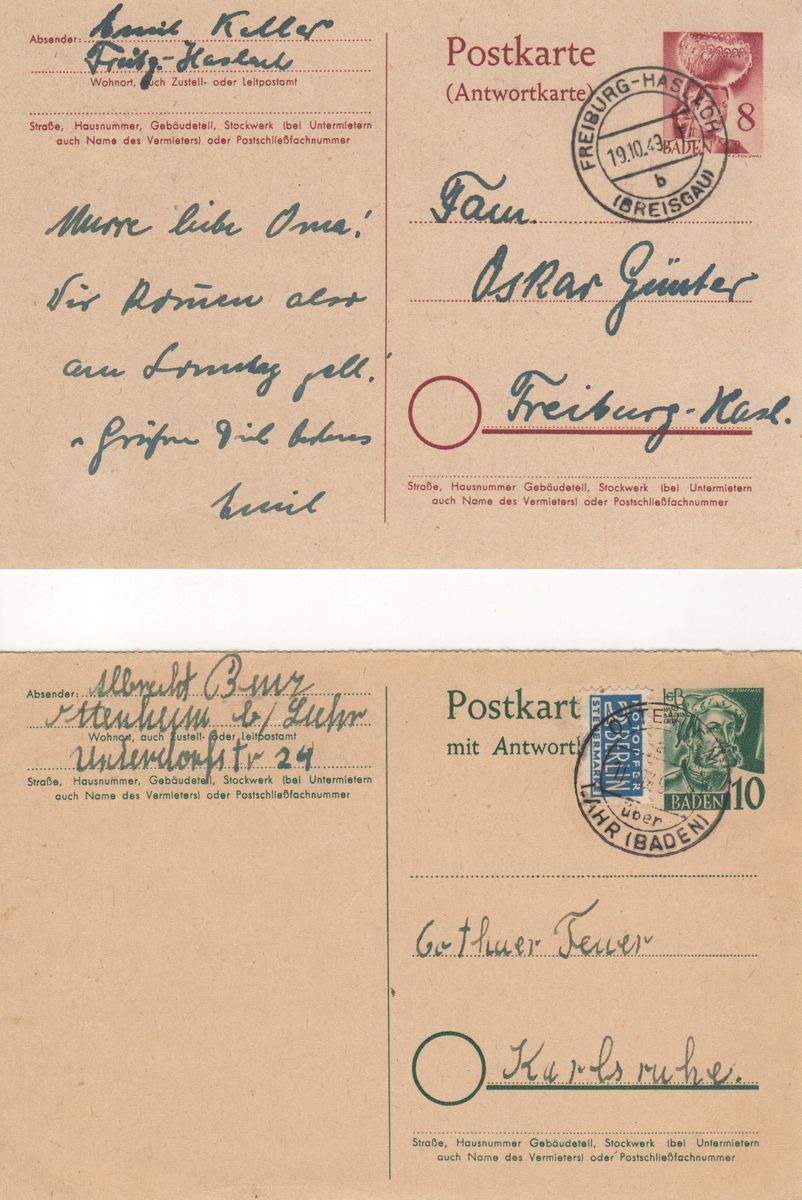 Absender: Emil Keller
Freibg.-Haslach
Wohnort, auch Zustell- oder Leitpostamt
Straße, Hausnummer, Gebäudeteil, Stockwerk (bei Untermietern
auch Name des Vermieters) oder Postschließfachnummer
liebe Oma!
Wir kommen also
am Sonntag gell!
Grüßen Dich bestens
Emil
Postkarte
(Antwortkarte)
8
BADEN
FREIBURG-HASLACH
19.10.49
b
(BREISGAU)
Fam.
Oskar Günter
Freiburg-Hasl.
Straße, Hausnummer Gebäudeteil, Stockwerk (bei Untermietern
auch Name des Vermieters) oder Postschließfachnummer
Absender: Albrecht Benz
Ottenheim b/ Lahr
Wohnort, auch Zustell- oder Leitpostamt
Unterdorfstr 24
Straße, Hausnummer, Gebäudeteil, Stockwerk (bei Untermietern
auch Name des Vermieters) oder Postschließfachnummer
Postkart
mit Antwortk
NOTOPFER
2 BERLIN
STEUERMARKE
BADEN
10
über
LAHR (BADEN)
Gothaer Feuer
Karlsruhe.
Straße, Hausnummer Gebäudeteil, Stockwerk (bei Untermietern
auch Name des Vermieters) oder Postschließfachnummer